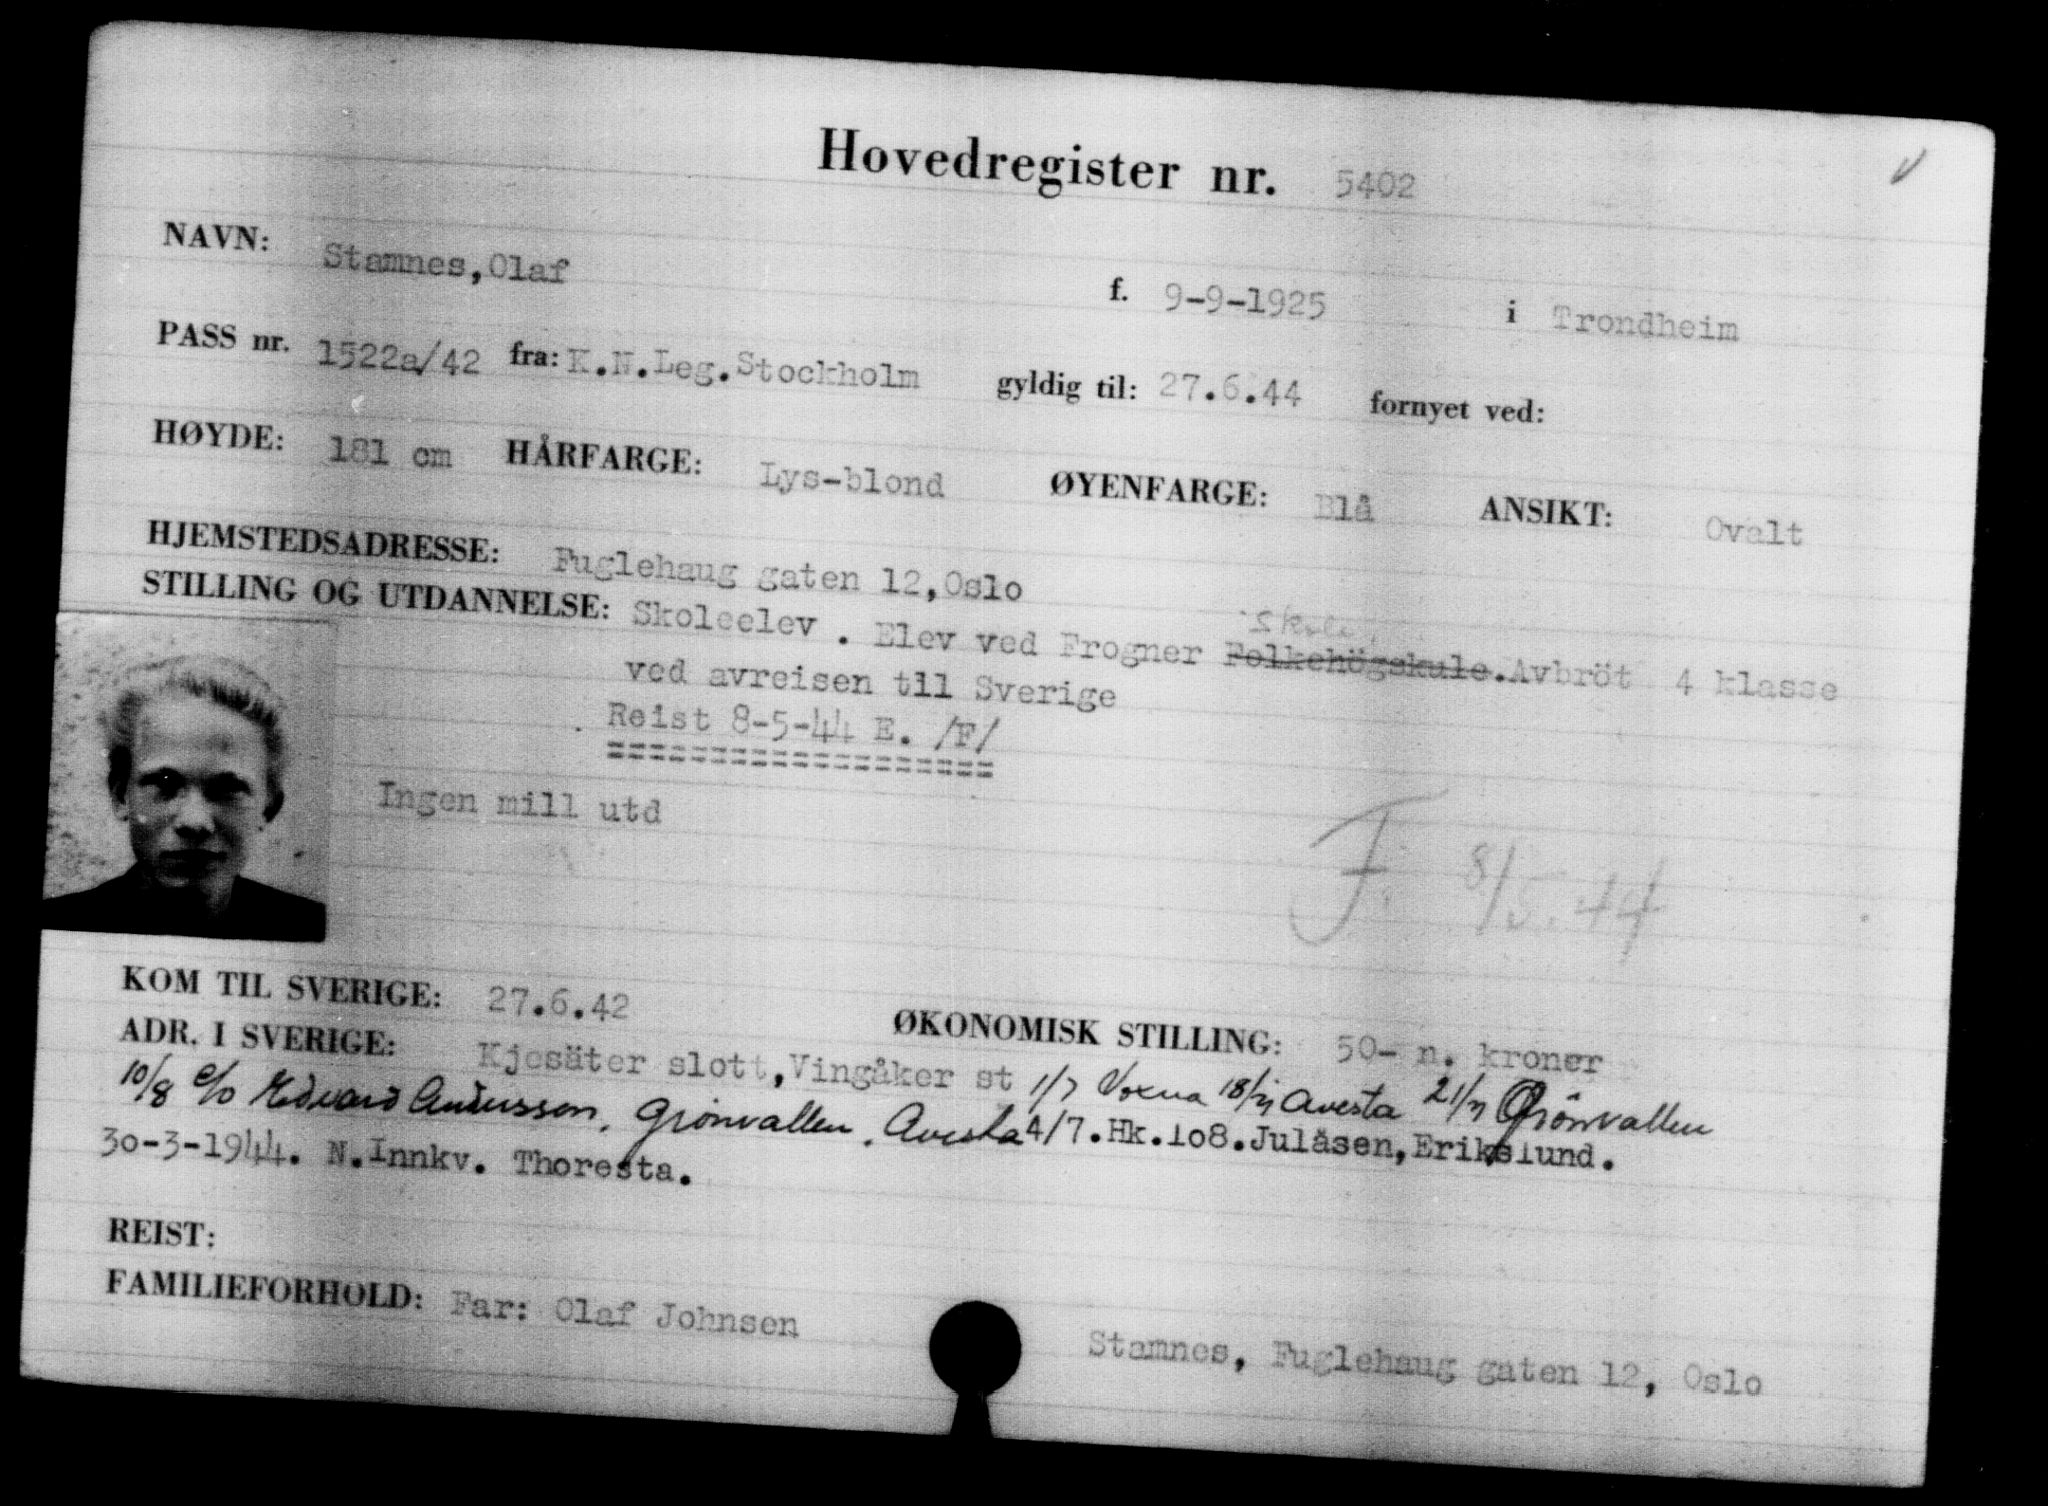 Hovedregister nr. 5402
NAVN: Stamnes,Olaf f. 9-9-1925 i Trondheim
PASS nr. 1522a/42 fra: K.N.Leg.Stockholm gyldig til: 27.6.44 fornyet ved:
HØYDE: 181 cm HÅRFARGE: Lys-blond ØYENFARGE: Blå ANSIKT: Ovalt
HJEMSTEDSADRESSE: Fuglehaug gaten 12,Oslo
skole
STILLING OG UTDANNELSE: Skoleelev . Elev ved Frogner Folkehögskule.Avbröt 4 klasse
ved avreisen til Sverige
Reist 8-5-44 E. /F/
===================
Ingen mill utd
F. 8/5.44
KOM TIL SVERIGE: 27.6.42 ØKONOMISK STILLING: 50- n. kroner
ADR. I SVERIGE: Kjesäter slott,Vingåker st 1/7 Voxna 18/7 Avesta 21/7 Grönvallen
10/8 c/o Edvard Andersson, Grönvallen, Avesta 4/7.Hk.108.Julåsen,Erikslund.
30-3-1944. N.Innkv. Thoresta.
REIST:
FAMILIEFORHOLD: Far: Olaf Johnsen Stamnes, Fuglehaug gaten 12, Oslo